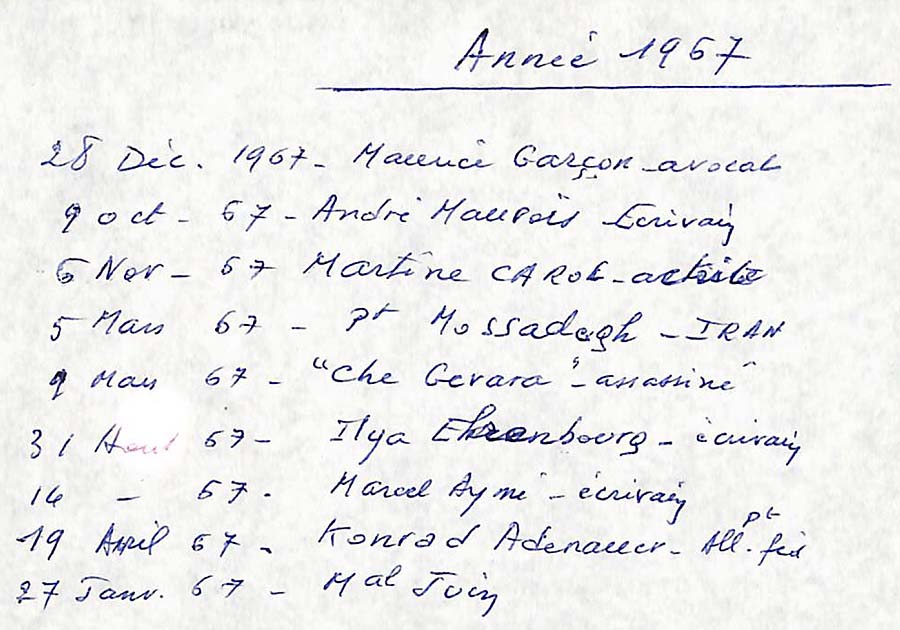 Année 1967
28 Déc. 1967 - Maurice Garçon - avocat
9 oct - 67 - André Maurois Ecrivain
6 Nov - 67 Martine CAROL - actrice
5 Mars 67 - Pt Mossadegh - IRAN
9 Mars 67 - "Che Gevara" - assassiné
31 Aout 67 - Ilya Ehrenbourg - écrivain
14 - 67 - Marcel Aymé - écrivain
19 Avril 67 - Konrad Adenauer - Pt All. féd
27 Janv. 67 - Mal Juin